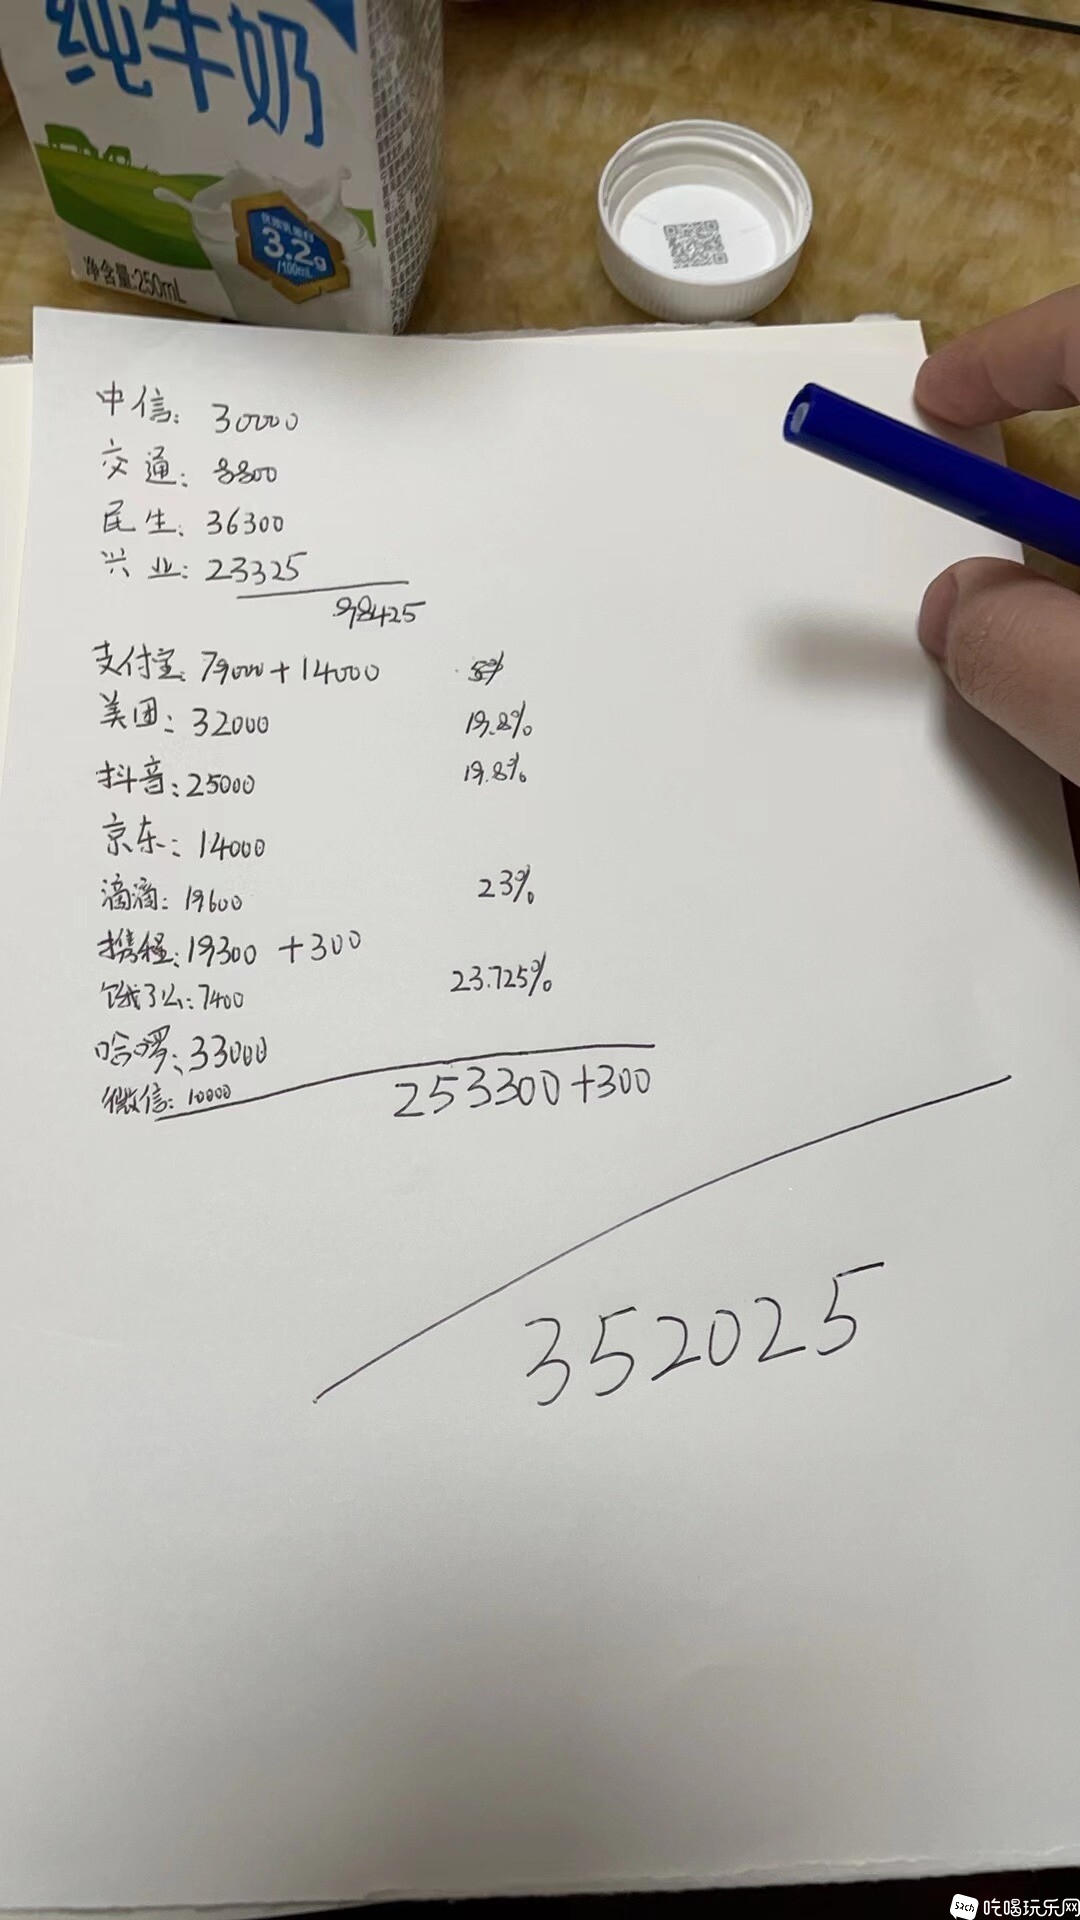 纯牛奶
优质乳蛋白
3.2g
/100mL
净含量:250mL
中信: 30000
交通: 8800
民生: 36300
兴业: 23325
98425
支付宝: 79000+14000
美团: 32000 19.8%
抖音: 25000 19.8%
京东: 14000
滴滴: 19600 23%
携程: 19300 +300
饿了么: 7400 23.725%
哈啰: 33000
微信: 10000
253300+300
352025
吃喝玩乐网